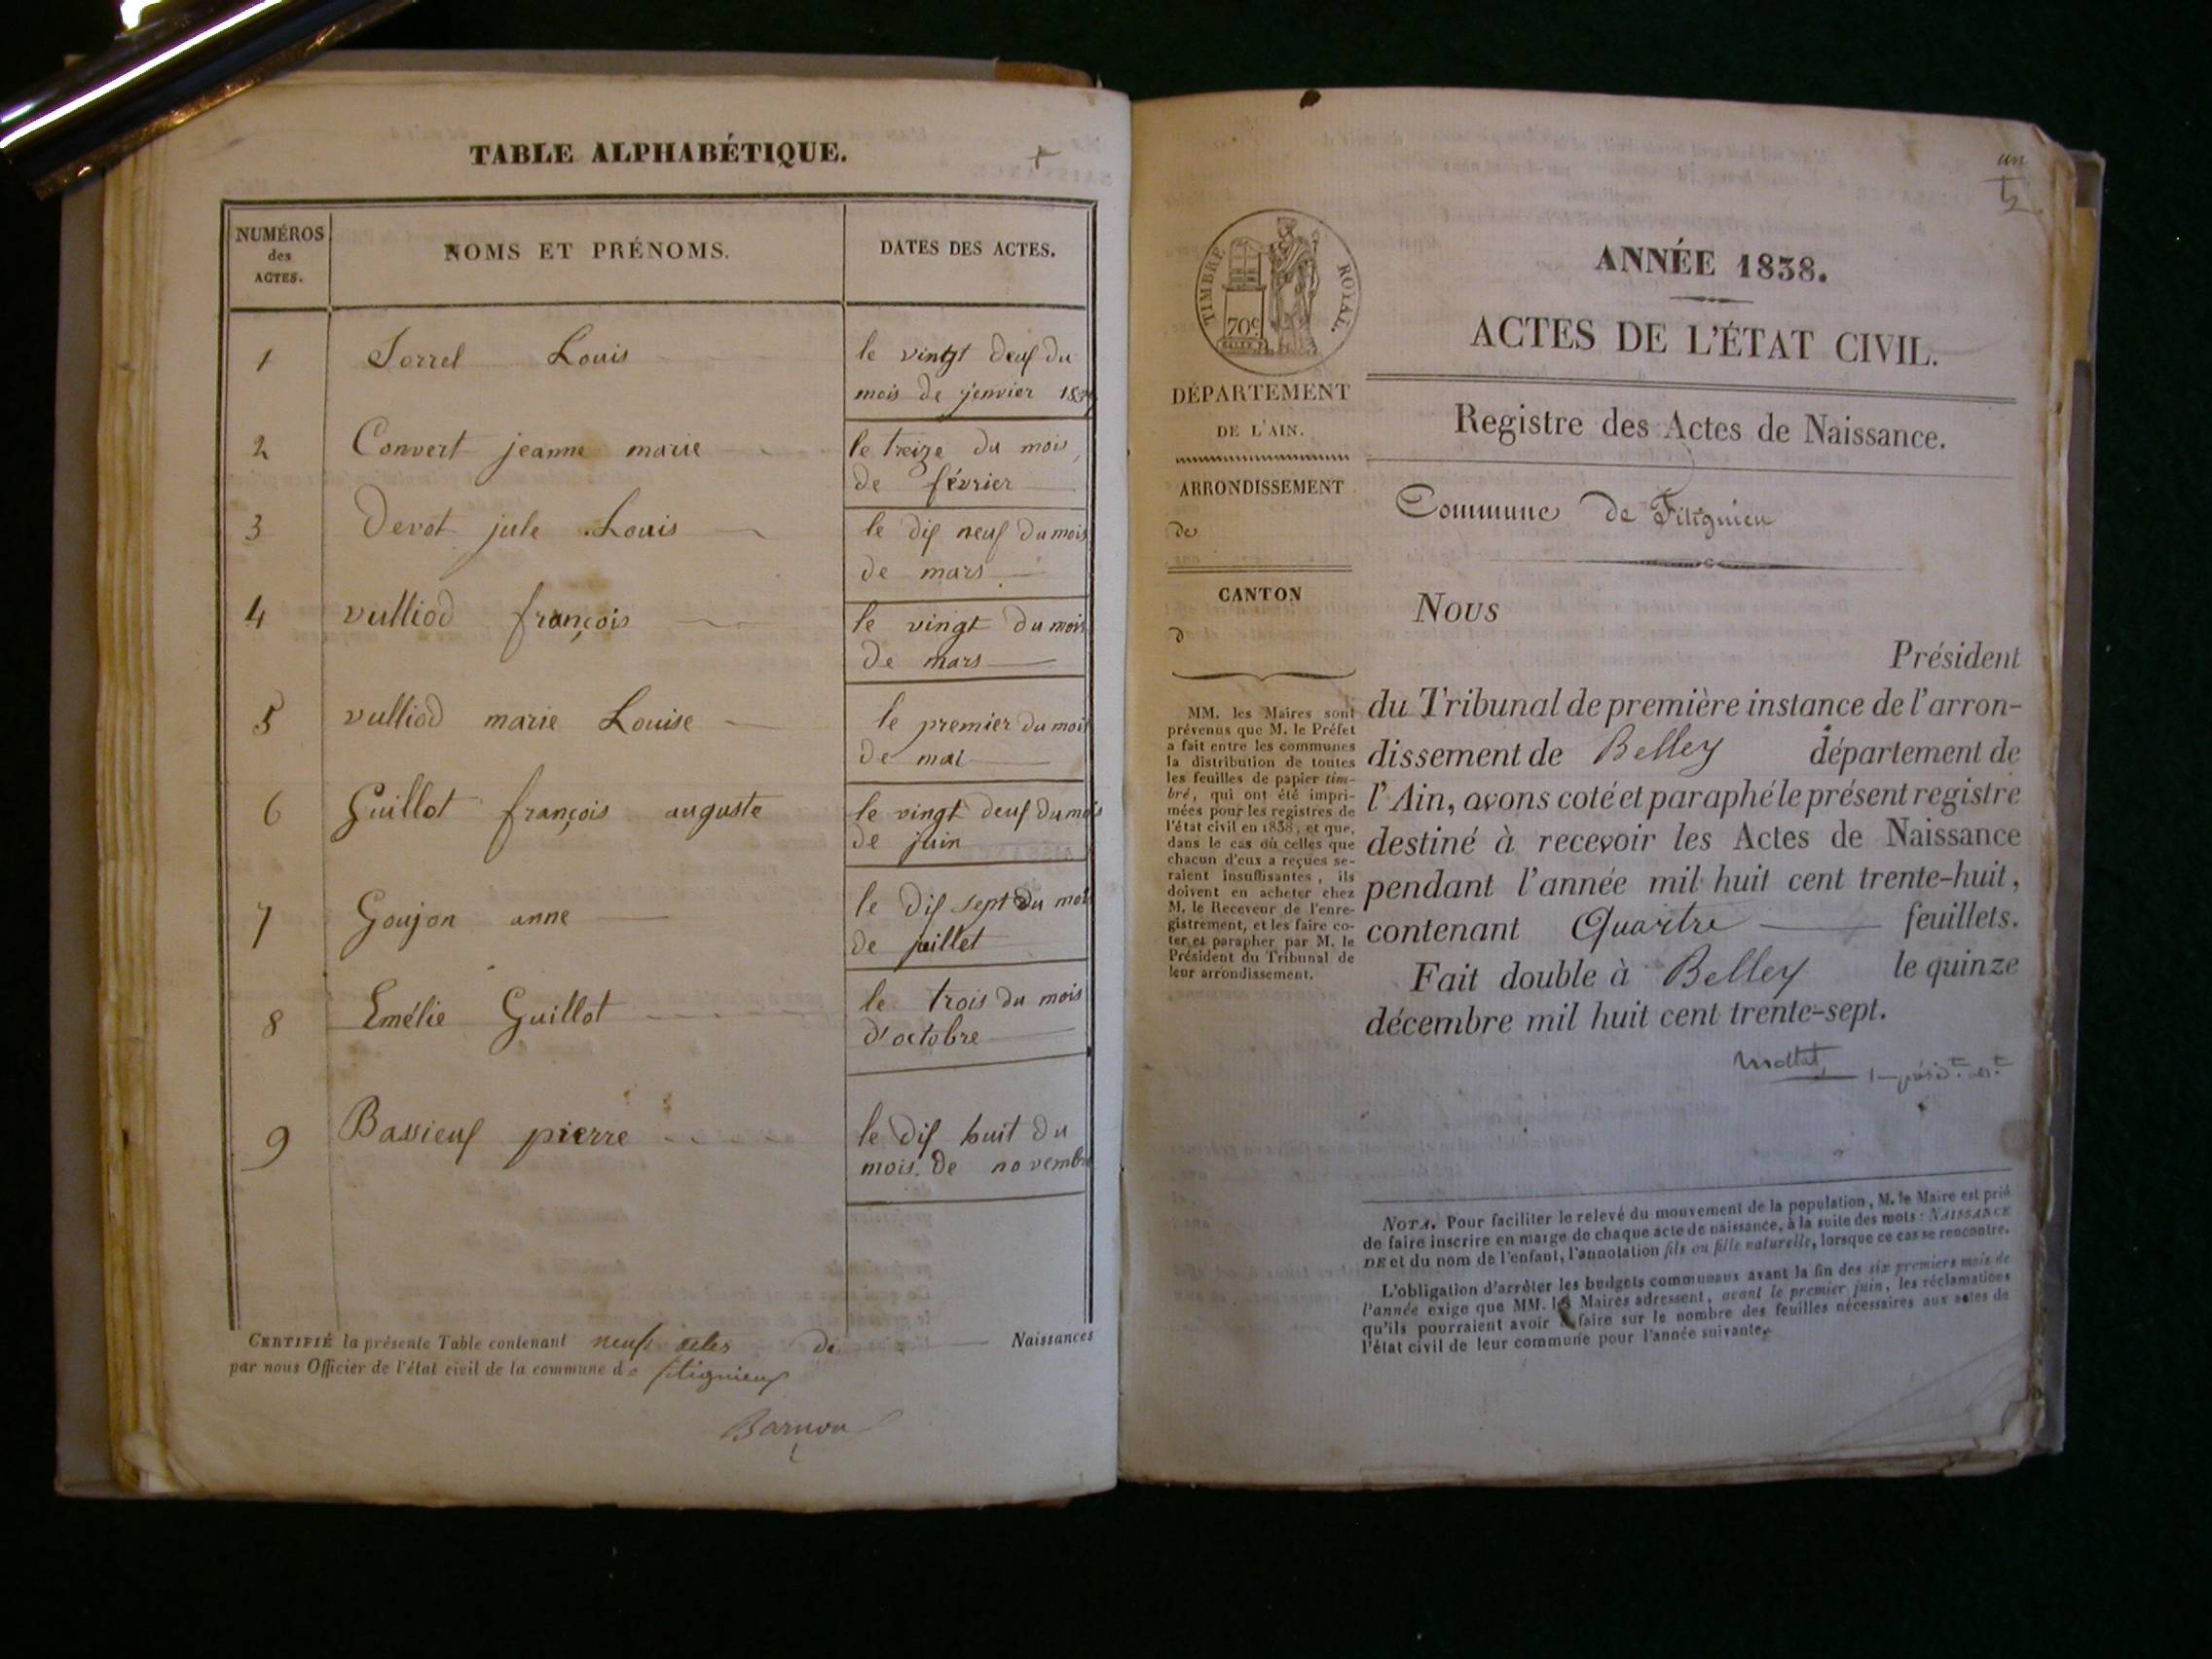 TABLE ALPHABÉTIQUE.
NUMÉROS
des
ACTES.
NOMS ET PRÉNOMS.
DATES DES ACTES.
1 Sorrel Louis le vingt deux du
mois de jenvier
2 Convert jeanne marie le treize du mois
de février
3 Devot jule Louis le dix neuf du mois
de mars
4 vulliod françois le vingt du mois
de mars
5 vulliod marie Louise le premier du mois
de mai
6 Guillot françois auguste le vingt deux du mois
de juin
7 Goujon anne le dix sept du mois
de juillet
8 Emélie Guillot le trois du mois
d'octobre
9 Bassieux pierre le dix huit du
mois de novembre
CERTIFIÉ la présente Table contenant neuf actes de Naissances
par nous Officier de l'état civil de la commune de fitignieux
Barnou
un
TIMBRE ROYAL.
70c
DÉPARTEMENT
DE L'AIN.
ARRONDISSEMENT
de
CANTON
d
MM. les Maires sont
prévenus que M. le Préfet
a fait entre les communes
la distribution de toutes
les feuilles de papier tim-
bré, qui ont été impri-
mées pour les registres de
l'état civil en 1838, et que,
dans le cas où celles que
chacun d'eux a reçues se-
raient insuffisantes, ils
doivent en acheter chez
M. le Receveur de l'enre-
gistrement, et les faire co-
ter et parapher par M. le
Président du Tribunal de
leur arrondissement.
ANNÉE 1838.
ACTES DE L'ÉTAT CIVIL.
Registre des Actes de Naissance.
Commune de Fitignieu
NOUS
Président
du Tribunal de première instance de l'arron-
dissement de Belley département de
l'Ain, avons coté et paraphé le présent registre
destiné à recevoir les Actes de Naissance
pendant l'année mil huit cent trente-huit,
contenant Quartre feuillets.
Fait double à Belley le quinze
décembre mil huit cent trente-sept.
NOTA. Pour faciliter le relevé du mouvement de la population, M. le Maire est prié
de faire inscrire en marge de chaque acte de naissance, à la suite des mots: NAISSANCE
DE et du nom de l'enfant, l'annotation fils ou fille naturelle, lorsque ce cas se rencontre.
L'obligation d'arrêter les budgets communaux avant la fin des six premiers mois de
l'année exige que MM. les Maires adressent, avant le premier juin, les réclamations
qu'ils pourraient avoir à faire sur le nombre des feuilles nécessaires aux actes de
l'état civil de leur commune pour l'année suivante.